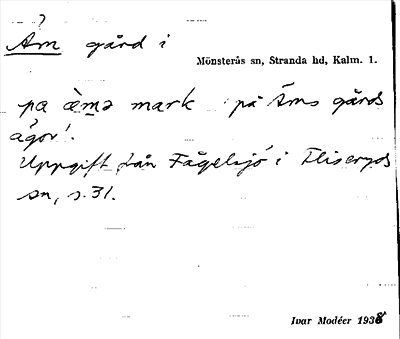 ?
Åm gård i
Mönsterås sn, Stranda hd, Kalm. l.
pa æ̀mə mark 'på Åms gårds
ägor'.
Uppgift från Fågelsjö i Fliseryds
sn, s. 31.
Ivar Modéer 1938